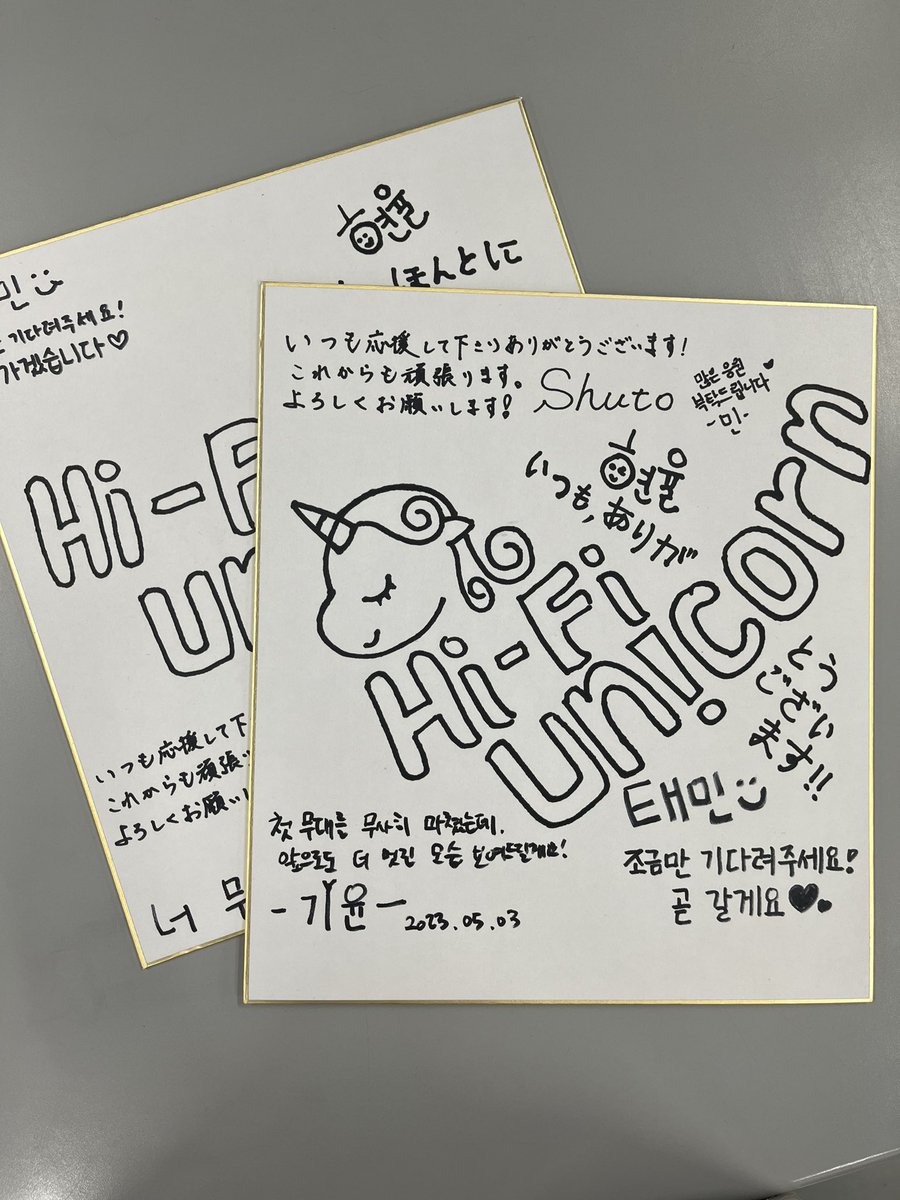 민
기다려주세요!
가겠습니다♡
현율
ほんとに
Hi-F
un
いつも応援して下
これからも頑張
よろしくお願い
너 무
いつも応援して下さりありがとうございます!
これからも頑張ります。
よろしくお願いします! Shuto
많은 응원
부탁드립니다♥
-민-
현율
いつも,ありが
とう
ござい
ます!!
Hi-Fi
un!corn
태민
조금만 기다려주세요!
곧 갈게요♥♥
첫 무대를 무사히 마쳤는데,
앞으로도 더 멋진 모습 보여드릴게요!
-기윤- 2023.05.03